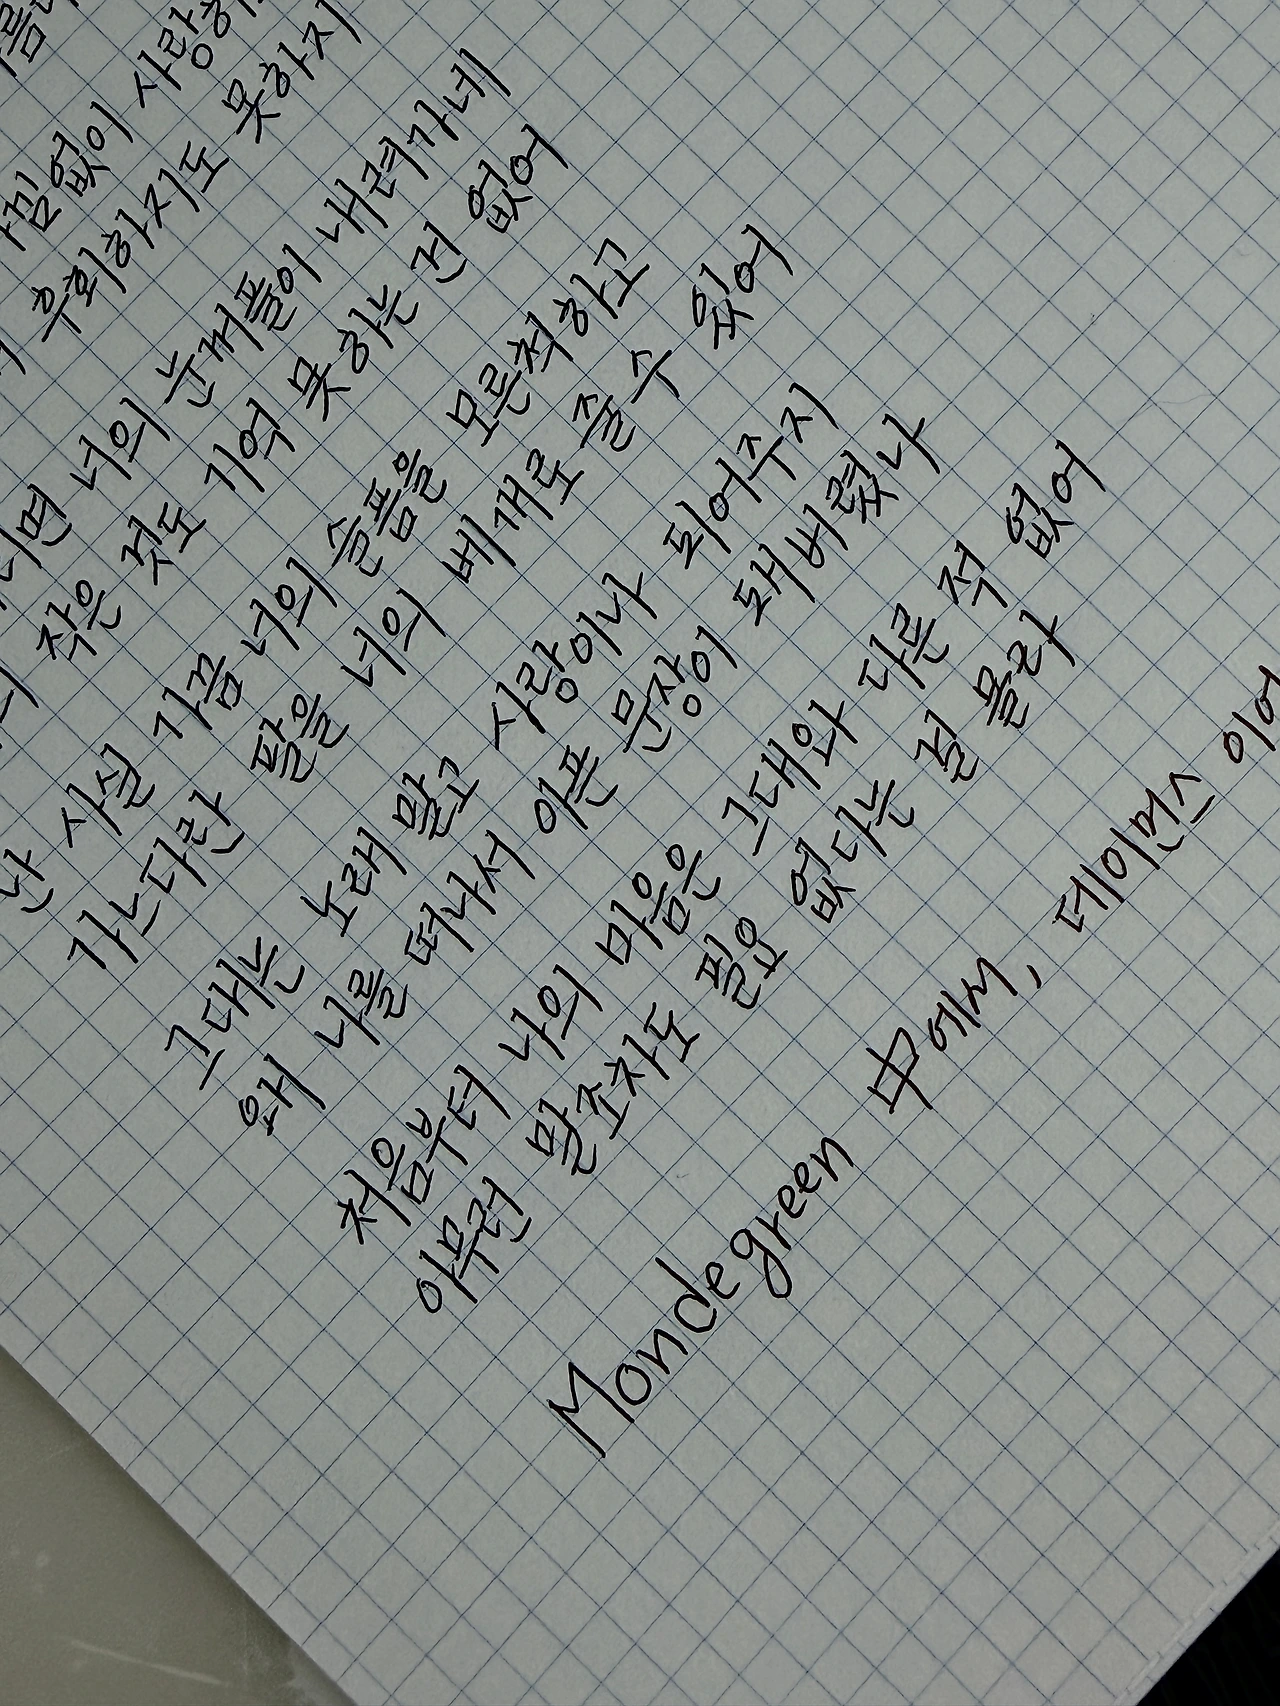 낌없이 사랑하
후회하지도 못하지
면 너의 눈꺼풀이 내려가네
작은 것도 기억 못하는 건 없어
난 사실 가끔 너의 슬픔을 모른척하고
가느다란 팔을 너의 베개로 줄 수 있어
그대는 노래 말고 사랑이나 되어주지
왜 나를 떠나서 아픈 문장이 돼버렸나
처음부터 나의 마음은 그대와 다른 적 없어
아무런 말조차도 필요 없다는 걸 몰라
Mondegreen 中에서, 데이먼스 이어